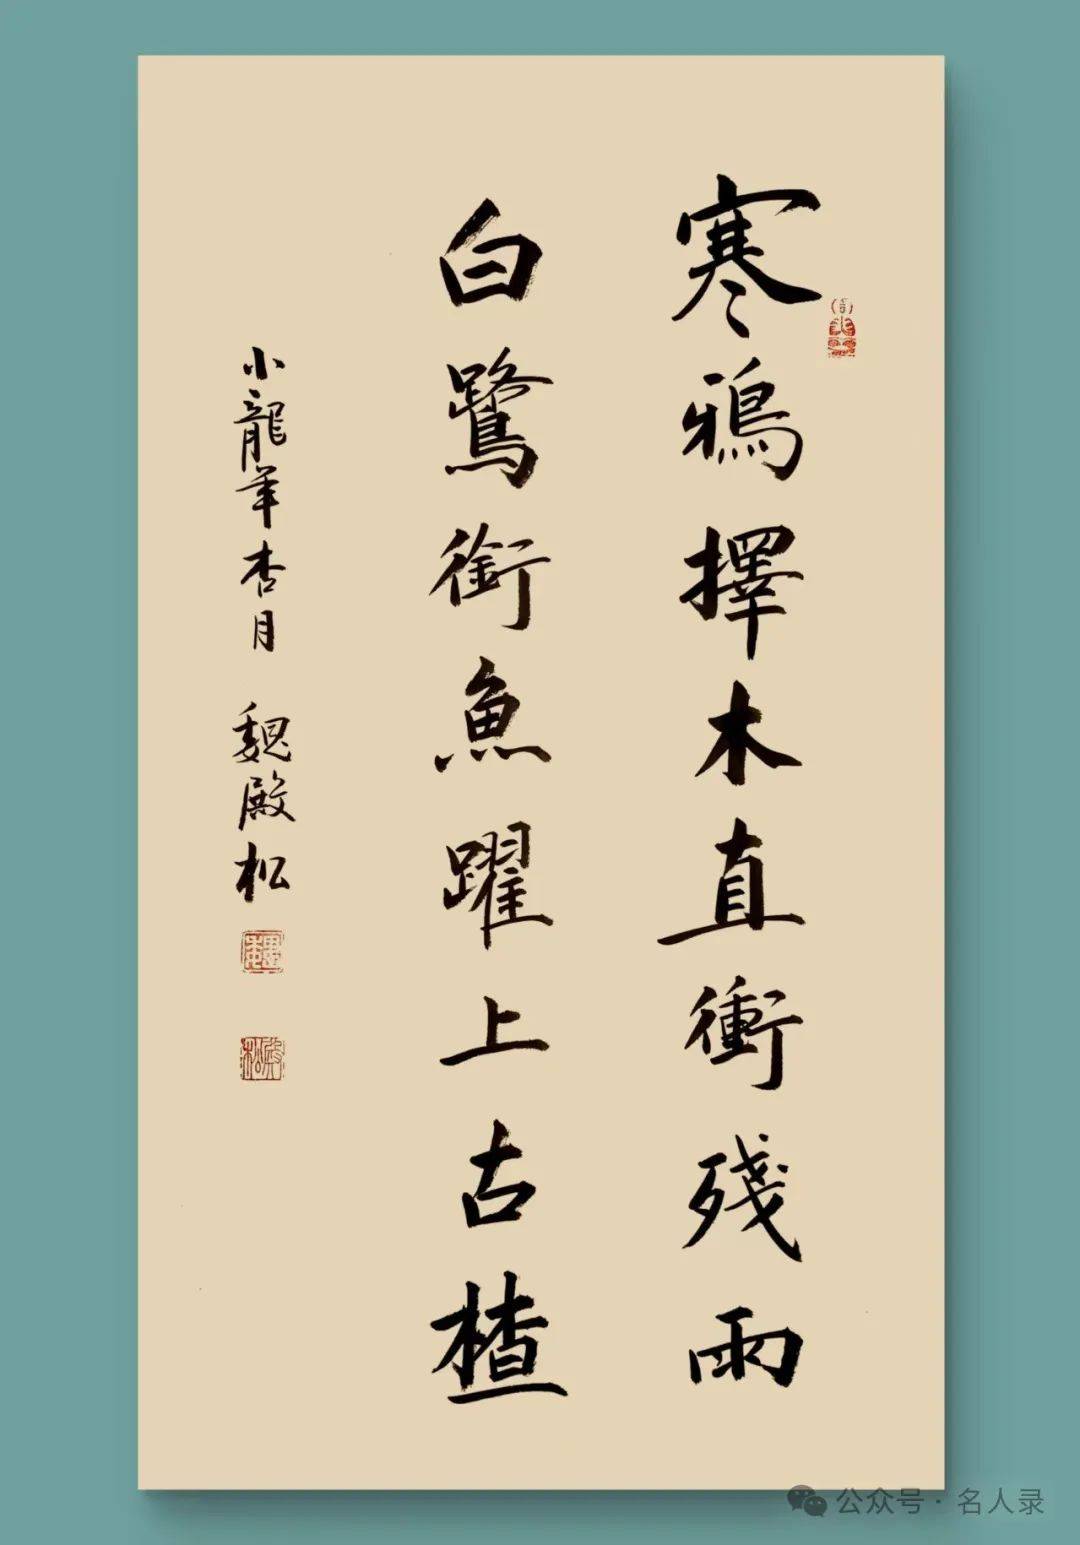 寒鴉擇木直衝殘雨
白鷺銜魚躍上古楂
小龍年杏月 魏殿松
公众号·名人录